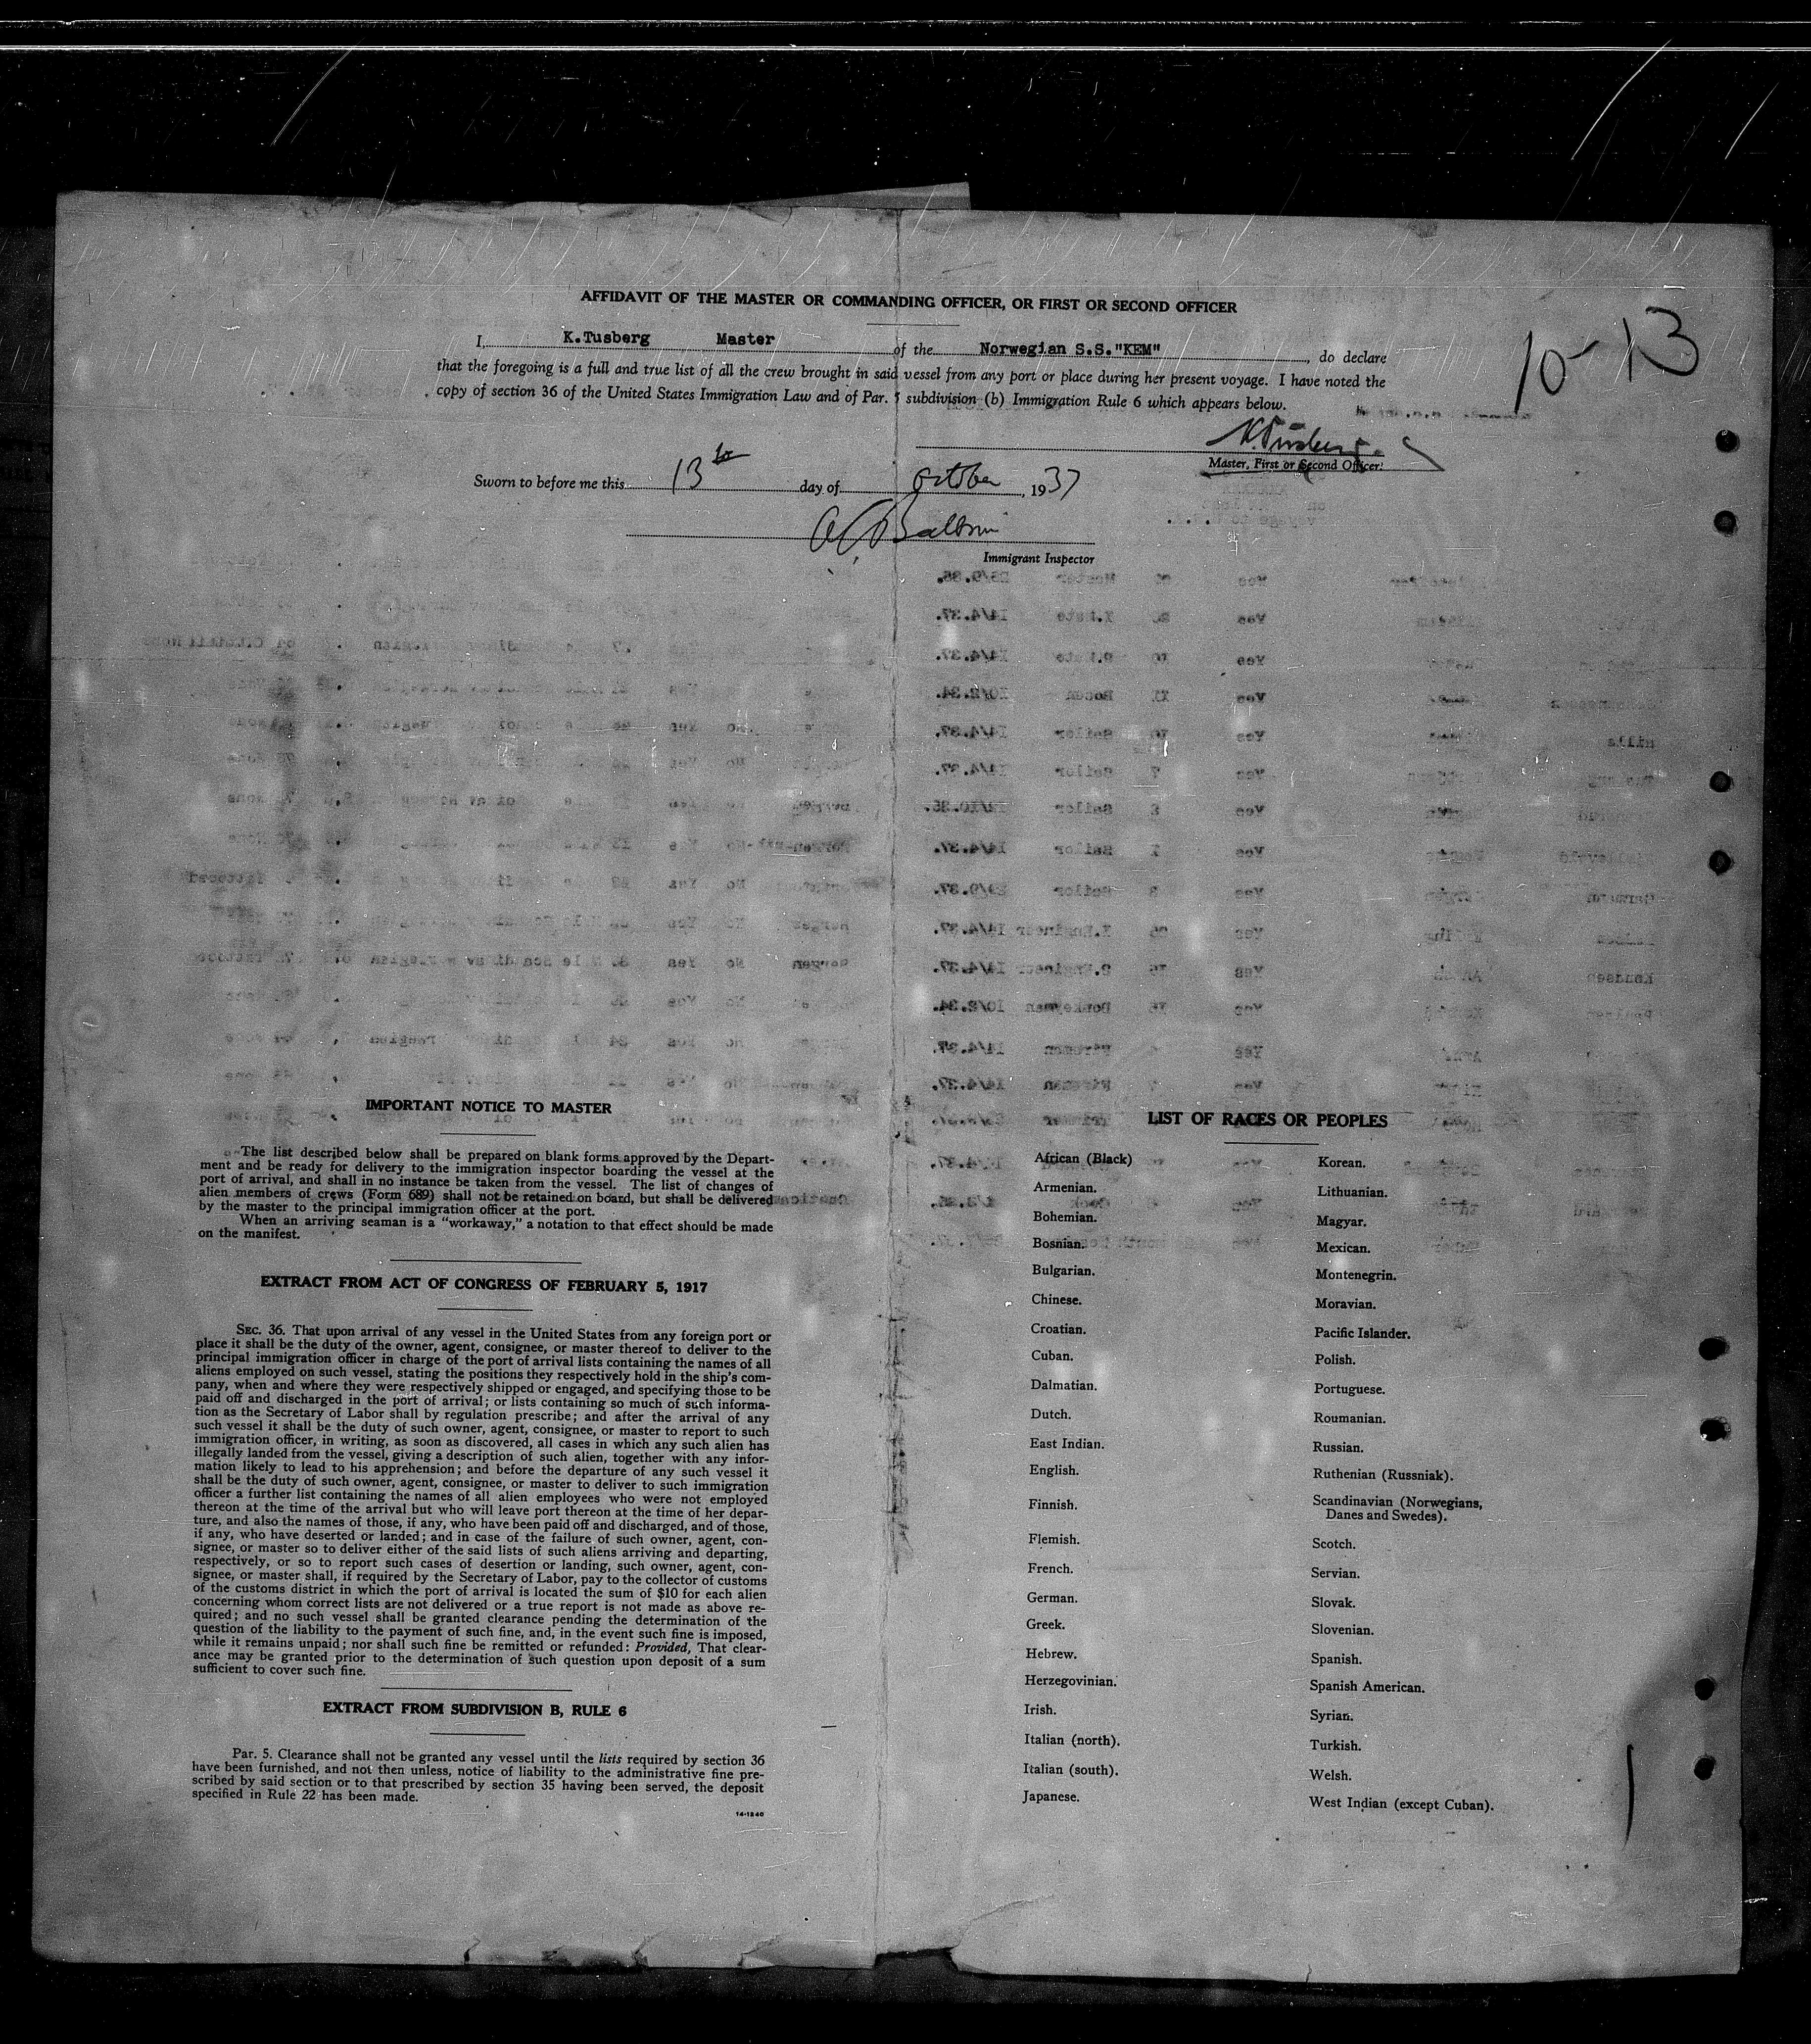 AFFIDAVIT OF THE MASTER OR COMMANDING OFFICER, OR FIRST OR SECOND OFFICER
10-13
I, K.Tusberg Master of the Norwegian S.S."KEM", do declare
that the foregoing is a full and true list of all the crew brought in said vessel from any port or place during her present voyage. I have noted the
copy of section 36 of the United States Immigration Law and of Par. 5 subdivision (b) Immigration Rule 6 which appears below.
K.Tusberg.
Master, First or Second Officer.
Sworn to before me this 13th day of October, 1937
Baldwin
Immigrant Inspector
IMPORTANT NOTICE TO MASTER
The list described below shall be prepared on blank forms approved by the Depart-
ment and be ready for delivery to the immigration inspector boarding the vessel at the
port of arrival, and shall in no instance be taken from the vessel. The list of changes of
alien members of crews (Form 689) shall not be retained on board, but shall be delivered
by the master to the principal immigration officer at the port.
When an arriving seaman is a "workaway," a notation to that effect should be made
on the manifest.
EXTRACT FROM ACT OF CONGRESS OF FEBRUARY 5, 1917
SEC. 36. That upon arrival of any vessel in the United States from any foreign port or
place it shall be the duty of the owner, agent, consignee, or master thereof to deliver to the
principal immigration officer in charge of the port of arrival lists containing the names of all
aliens employed on such vessel, stating the positions they respectively hold in the ship's com-
pany, when and where they were respectively shipped or engaged, and specifying those to be
paid off and discharged in the port of arrival; or lists containing so much of such informa-
tion as the Secretary of Labor shall by regulation prescribe; and after the arrival of any
such vessel it shall be the duty of such owner, agent, consignee, or master to report to such
immigration officer, in writing, as soon as discovered, all cases in which any such alien has
illegally landed from the vessel, giving a description of such alien, together with any infor-
mation likely to lead to his apprehension; and before the departure of any such vessel it
shall be the duty of such owner, agent, consignee, or master to deliver to such immigration
officer a further list containing the names of all alien employees who were not employed
thereon at the time of the arrival but who will leave port thereon at the time of her depar-
ture, and also the names of those, if any, who have been paid off and discharged, and of those,
if any, who have deserted or landed; and in case of the failure of such owner, agent, con-
signee, or master so to deliver either of the said lists of such aliens arriving and departing,
respectively, or so to report such cases of desertion or landing, such owner, agent, con-
signee, or master shall, if required by the Secretary of Labor, pay to the collector of customs
of the customs district in which the port of arrival is located the sum of $10 for each alien
concerning whom correct lists are not delivered or a true report is not made as above re-
quired; and no such vessel shall be granted clearance pending the determination of the
question of the liability to the payment of such fine, and, in the event such fine is imposed,
while it remains unpaid; nor shall such fine be remitted or refunded: Provided, That clear-
ance may be granted prior to the determination of such question upon deposit of a sum
sufficient to cover such fine.
EXTRACT FROM SUBDIVISION B, RULE 6
Par. 5. Clearance shall not be granted any vessel until the lists required by section 36
have been furnished, and not then unless, notice of liability to the administrative fine pre-
scribed by said section or to that prescribed by section 35 having been served, the deposit
specified in Rule 22 has been made.
14-1240
LIST OF RACES OR PEOPLES
African (Black)
Armenian.
Bohemian.
Bosnian.
Bulgarian.
Chinese.
Croatian.
Cuban.
Dalmatian.
Dutch.
East Indian.
English.
Finnish.
Flemish.
French.
German.
Greek.
Hebrew.
Herzegovinian.
Irish.
Italian (north).
Italian (south).
Japanese.
Korean.
Lithuanian.
Magyar.
Mexican.
Montenegrin.
Moravian.
Pacific Islander.
Polish.
Portuguese.
Roumanian.
Russian.
Ruthenian (Russniak).
Scandinavian (Norwegians,
Danes and Swedes).
Scotch.
Servian.
Slovak.
Slovenian.
Spanish.
Spanish American.
Syrian.
Turkish.
Welsh.
West Indian (except Cuban).